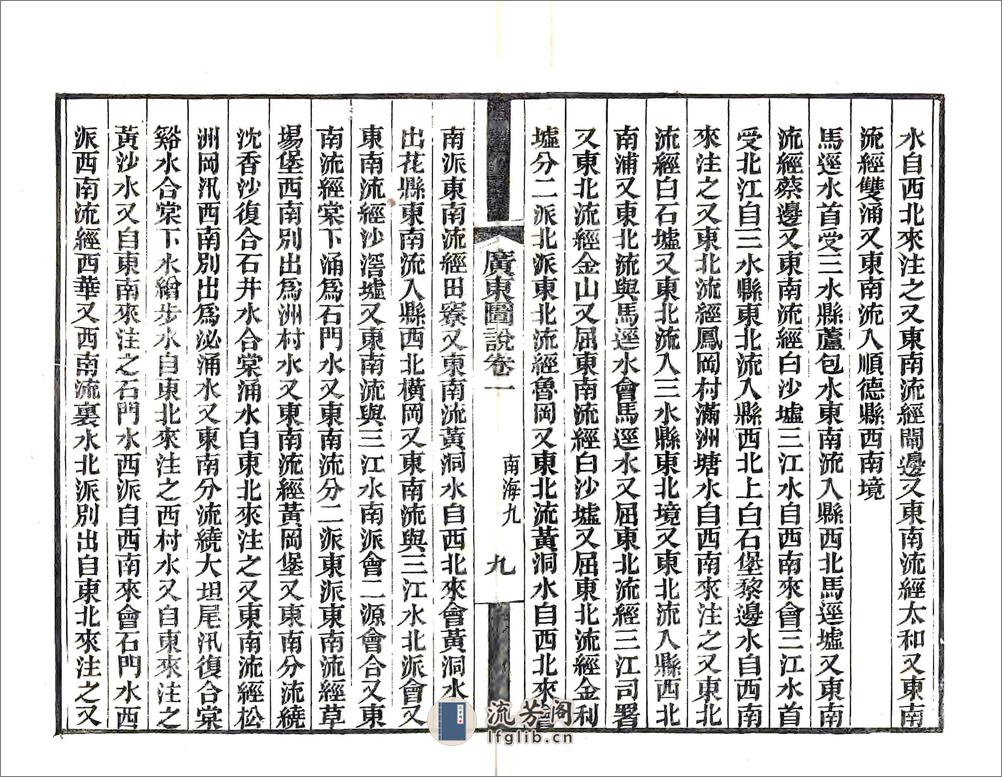 水自西北來注之又東南流經閘邊又東南流經太和又東南
流經雙涌又東南流入順德縣西南境
馬逕水首受三水縣蘆包水東南流入縣西北馬逕墟又東
流經蔡邊又東南流經白沙墟三江水自西南來會三江水首
受北江自三水縣東北流入縣西北上白石堡黎邊水自西南
來注之又東北流經鳳岡村滿洲塘水自西南來注之又東北
流經白石墟又東北流入三水縣東北境又東北流入縣西北
南浦又東北流與馬逕水會馬逕水又屈東北流經三江司署
又東北流經金山又屈東南流經白沙墟又屈東北流經金利
墟分二派北派東北流經魯岡又東北流黃洞水自西北來會
廣東圖說卷一
南海九
九
南派東南流經田藔又東南流黃洞水自西北來會黃洞水
出花縣東南流入縣西北橫岡又東南流與三江水北派會又
東南流經沙溚墟又東南流與三江水南派會二源會合又東
南流經棠下涌爲石門水又東南流分二派東派東南流經草
場堡西南別出爲洲村水又東南流經黃岡堡又東南分流繞
沈香沙復合石井水合棠涌水自東北來注之又東南流經松
洲岡汛西南別出爲泌涌水又東南分流繞大坦尾汛復合棠
谿水合棠下水繒步水自東北來注之西村水又自東來注之
黃沙水又自東南來注之石門水西派自西南來會石門水西
派西南流經西華又西南流裏水北派別出自東北來注之又
流芳阁
lfglib.cn